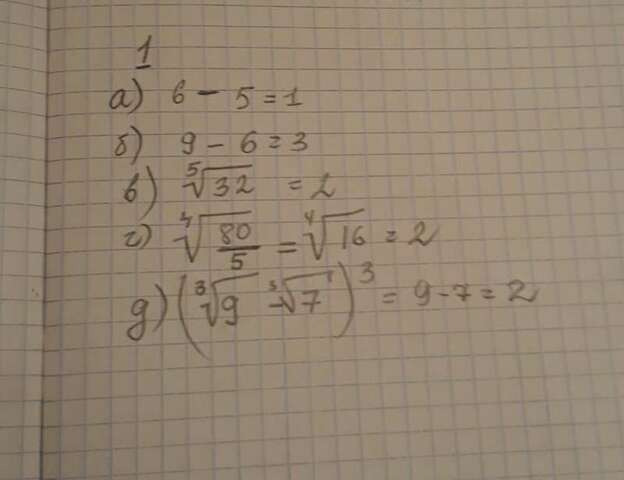 1
а) 6 - 5 = 1
б) 9 - 6 = 3
в) ⁵√32 = 2
г) ⁴√(80/5) = ⁴√16 = 2
д) (³√9 - ³√7)³ = 9 - 7 = 2